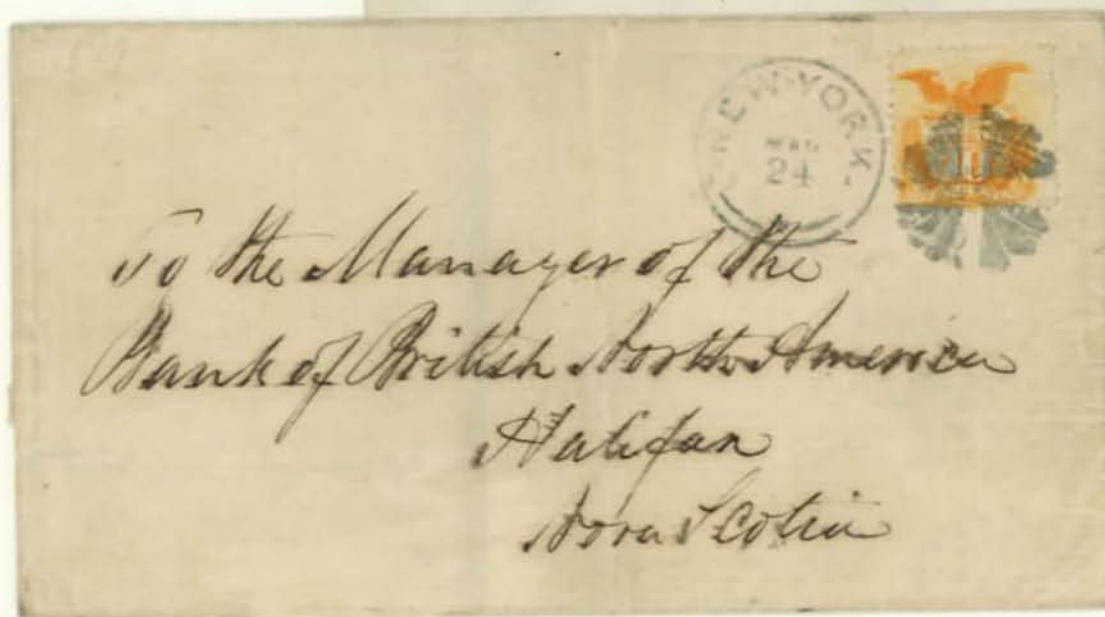 NEW-YORK.
MAR
24
10
To the Manager of the
Bank of British North America
Halifax
Nova Scotia